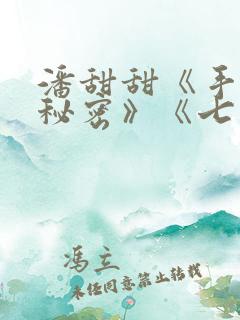 潘甜甜《手
秘密》《七
冯立
未经同意禁止转载